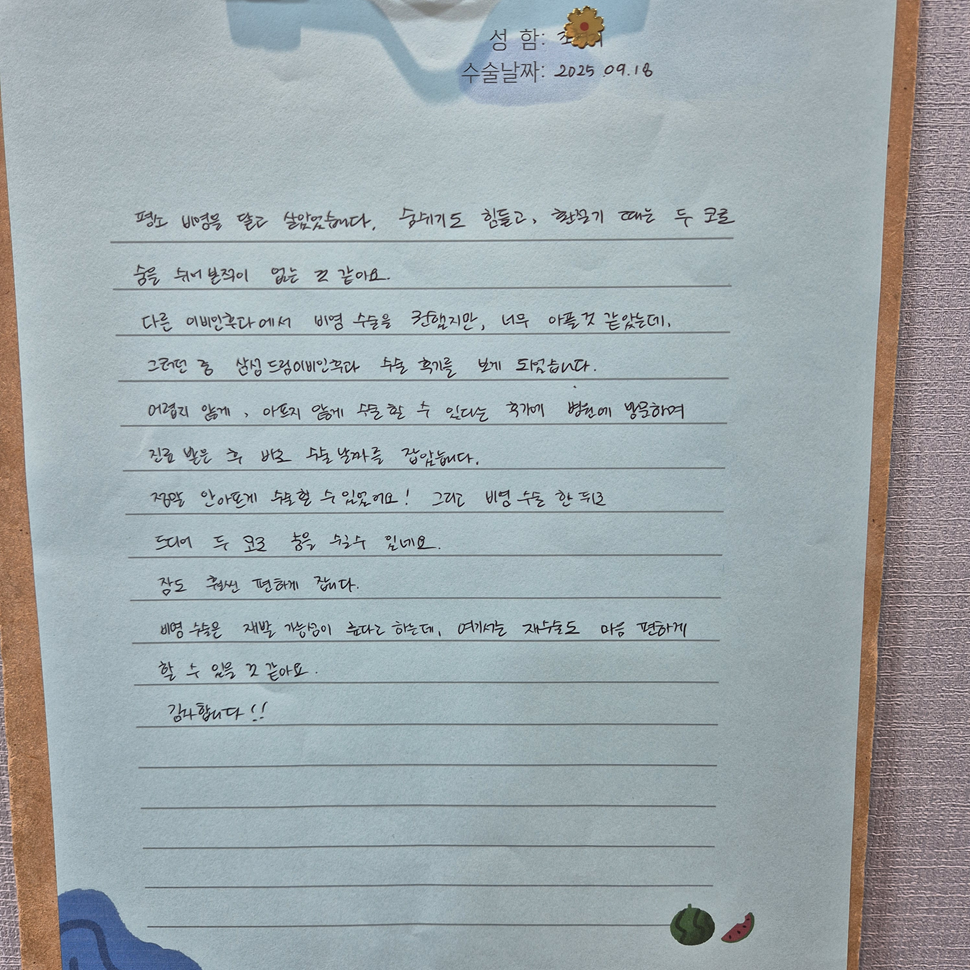 성 함:
수술날짜: 2025.09.18
평소 비염을 달고 살았었습니다. 숨쉬기도 힘들고, 환절기 때는 두 코로
숨을 쉬어본적이 없는 것 같아요.
다른 이비인후과에서 비염 수술을 권했지만, 너무 아플것 같았는데,
그러던 중 삼성드림이비인후과 수술 후기를 보게 되었습니다.
어렵지 않게, 아프지 않게 수술할 수 있다는 후기에 병원에 방문하여
진료 받은 후 바로 수술날짜를 잡았습니다.
정말 안아프게 수술할 수 있었어요! 그리고 비염 수술 한 뒤로
드디어 두 코로 숨을 쉴수 있네요.
잠도 훨씬 편하게 잡니다.
비염 수술은 재발 가능성이 높다고 하는데, 여기서는 재수술도 마음 편하게
할 수 있을 것 같아요.
감사합니다!!